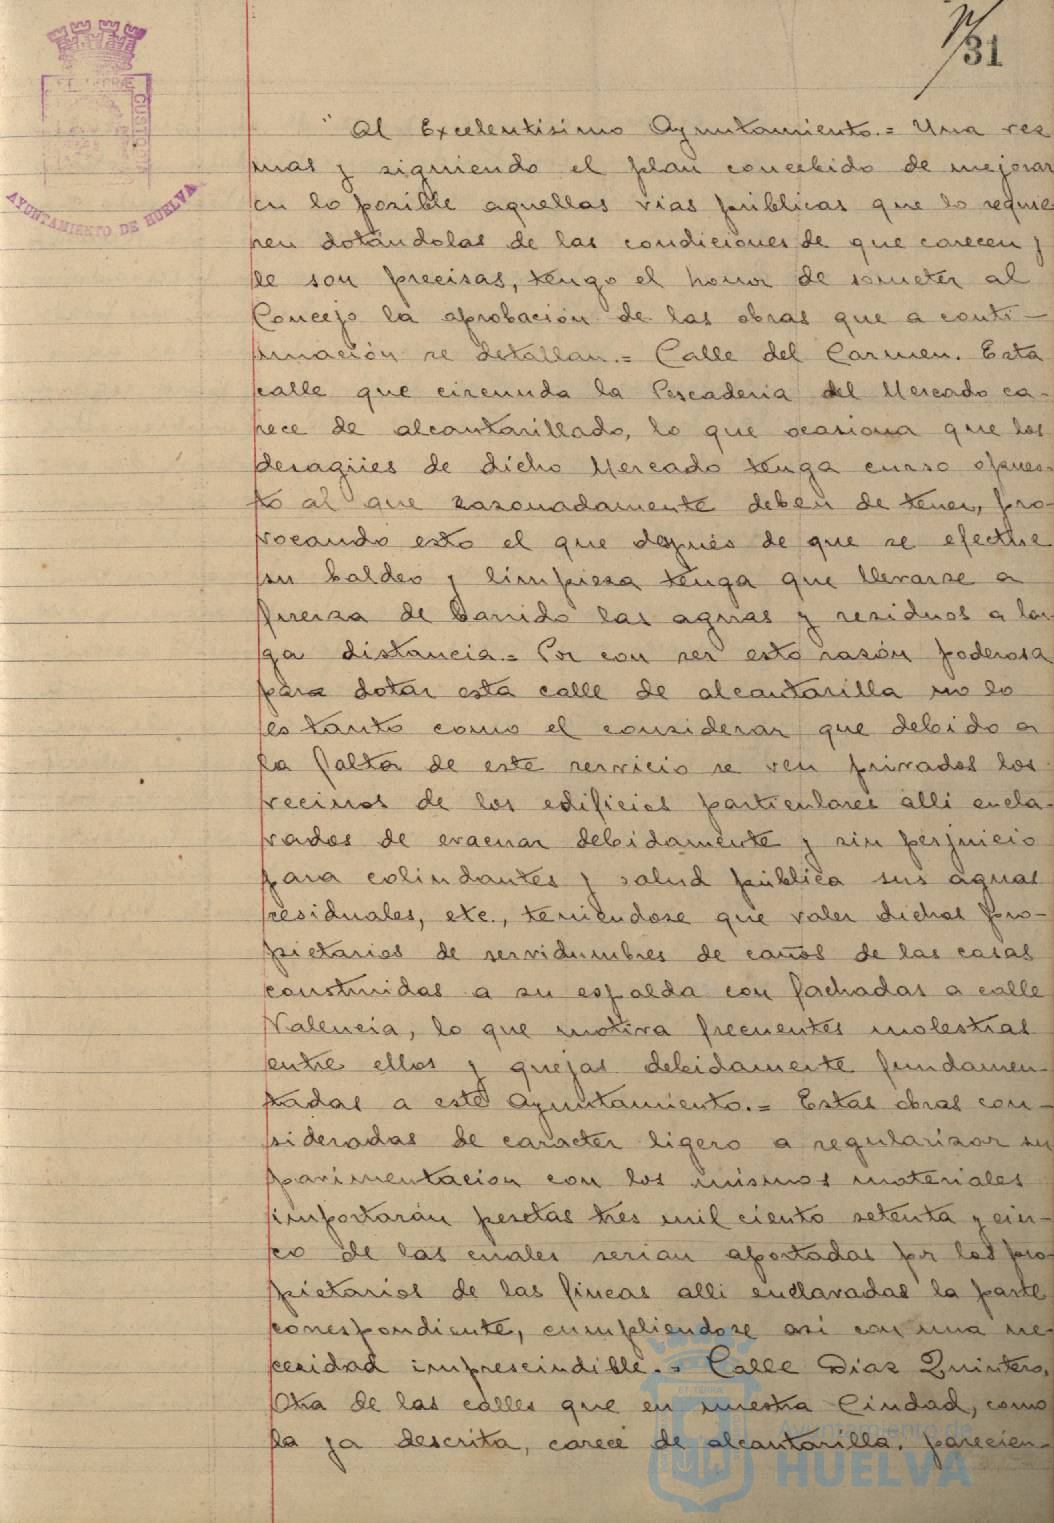 31
ET TERRÆ CUSTODIA
AYUNTAMIENTO DE HUELVA
"Al Excelentísimo Ayuntamiento.= Una vez
mas y siguiendo el plan concebido de mejorar
en lo posible aquellas vias públicas que lo requie
ren dotándolas de las condiciones de que carecen y
le son precisas, tengo el honor de someter al
Concejo la aprobación de las obras que a conti-
nuación se detallan.= Calle del Carmen. Esta
calle que circunda la Pescaderia del Mercado ca-
rece de alcantarillado, lo que ocasiona que los
desagües de dicho Mercado tenga curso opues-
to al que razonadamente deben de tener, pro-
vocando esto el que después de que se efectue
su baldeo y limpieza tenga que llevarse a
fuerza de barrido las aguas y residuos a lar-
ga distancia.= Por con ser esto razón poderosa
para dotar esta calle de alcantarilla no lo
es tanto como el considerar que debido a
la falta de este servicio se ven privados los
vecinos de los edificios particulares alli encla-
vados de evacuar debidamente y sin perjuicio
para colindantes y salud pública sus aguas
residuales, etc., teniendose que valer dichos pro-
pietarios de servidumbres de caños de las casas
construidas a su espalda con fachadas a calle
Valencia, lo que motiva frecuentes molestias
entre ellos y quejas debidamente fundamen-
tadas a este Ayuntamiento.= Estas obras con-
sideradas de caracter ligero a regularizar su
pavimentacion con los mismos materiales
importarán pesetas tres mil ciento setenta y cin-
co de las cuales serian aportadas por los pro-
pietarios de las fincas alli enclavadas la parte
correspondiente, cumpliendose asi con una ne-
cesidad imprescindible.= Calle Diaz Quintero.
Otra de las calles que en nuestra Ciudad, como
la ya descrita, carece de alcantarilla, parecien-
Ayuntamiento de
HUELVA